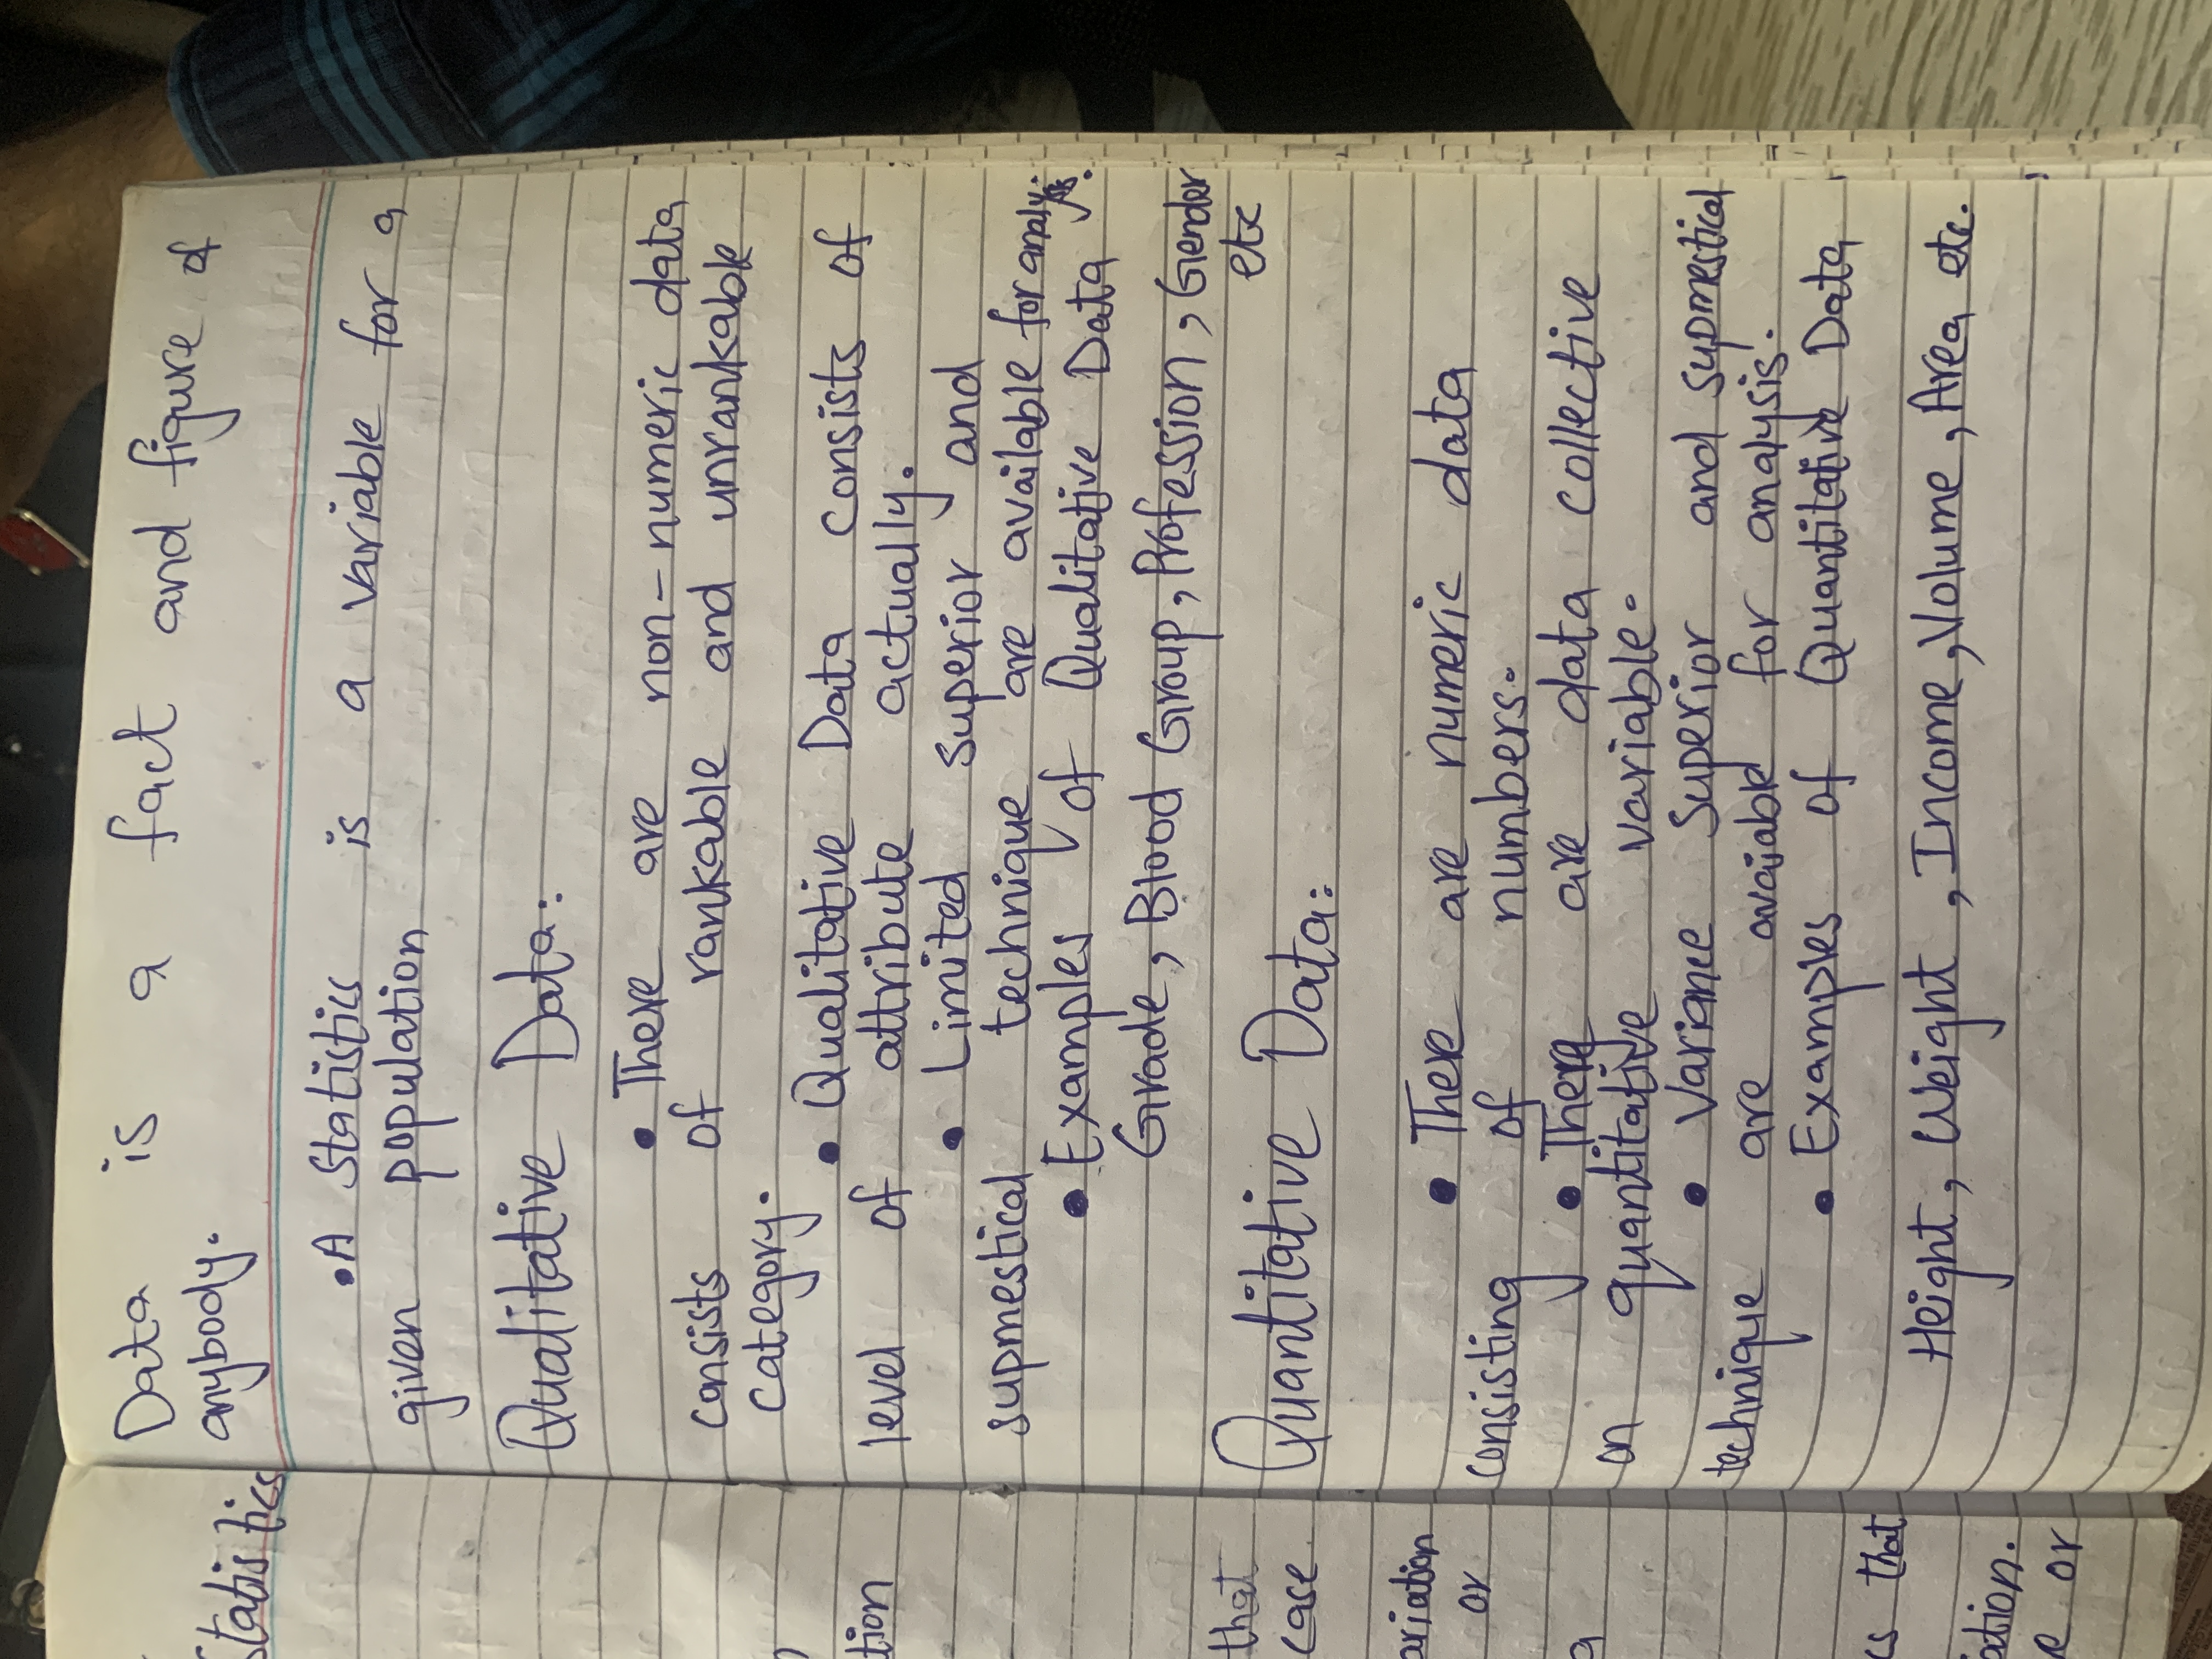 Data is a fact and figure of
anybody.
• A Statistics is a variable for a
given population
Qualitative Data:
• There are non-numeric data
consists of rankable and unrankable
category.
• Qualitative Data consists of
level of attribute actually.
• Limited superior and
supmestical technique are available for analysis.
• Examples of Qualitative Data
Grade, Blood Group, Profession, Gender
etc
Quantitative Data:
• There are numeric data
consisting of numbers.
• There are data collective
on quantitative variable.
• Variance Superior and supmestical
technique are avaiable for analysis.
• Examples of Quantitative Data
Height, Weight, Income, Volume, Area etc.
Statistics
tion
that
case
ariation
or
a
cs that
ation.
e or